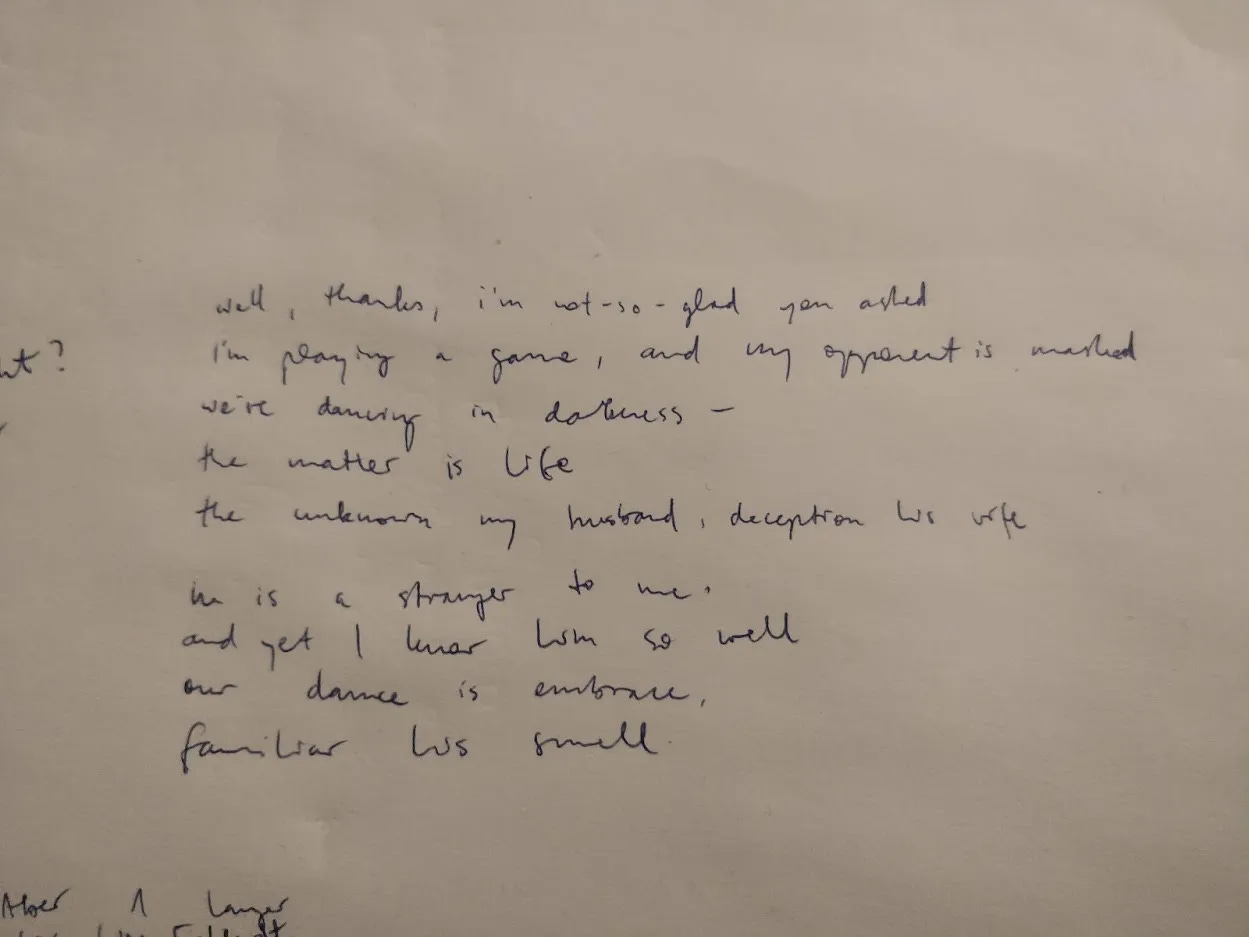 well, thanks, i'm not-so-glad you asked
i'm playing a game, and my opponent is masked
nt?
we're dancing in darkness —
the matter is life
the unknown my husband, deception his wife
he is a stranger to me.
and yet I know him so well
our dance is embrace,
familiar his smell.
Aber 1 langer